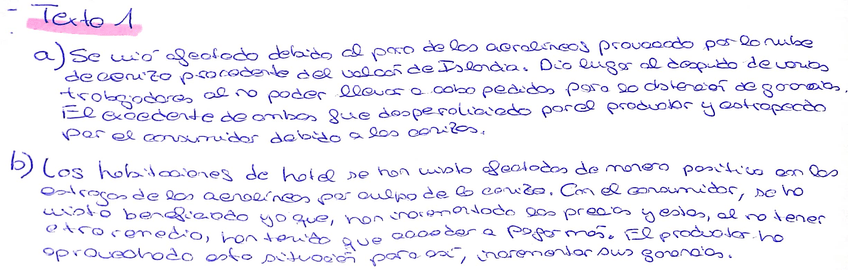 - Texto 1
a) Se vió afectado debido al paro de las aerolíneas provocado por la nube
de ceniza procedente del volcán de Islandia. Dio lugar al despido de varios
trabajadores al no poder llevar a cabo pedidos para la obtención de ganancias.
El excedente de ambos fue desperdiciado por el productor y estropeado
por el consumidor debido a las cenizas.
b) Las habitaciones de hotel se han visto afectadas de manera positiva con los
estragos de las aerolíneas por culpa de la ceniza. Con el consumidor, se ha
visto beneficiado ya que, han incrementado los precios y estos, al no tener
otro remedio, han tenido que acceder a pagar más. El productor ha
aprovechado esta situación para así, incrementar sus ganancias.